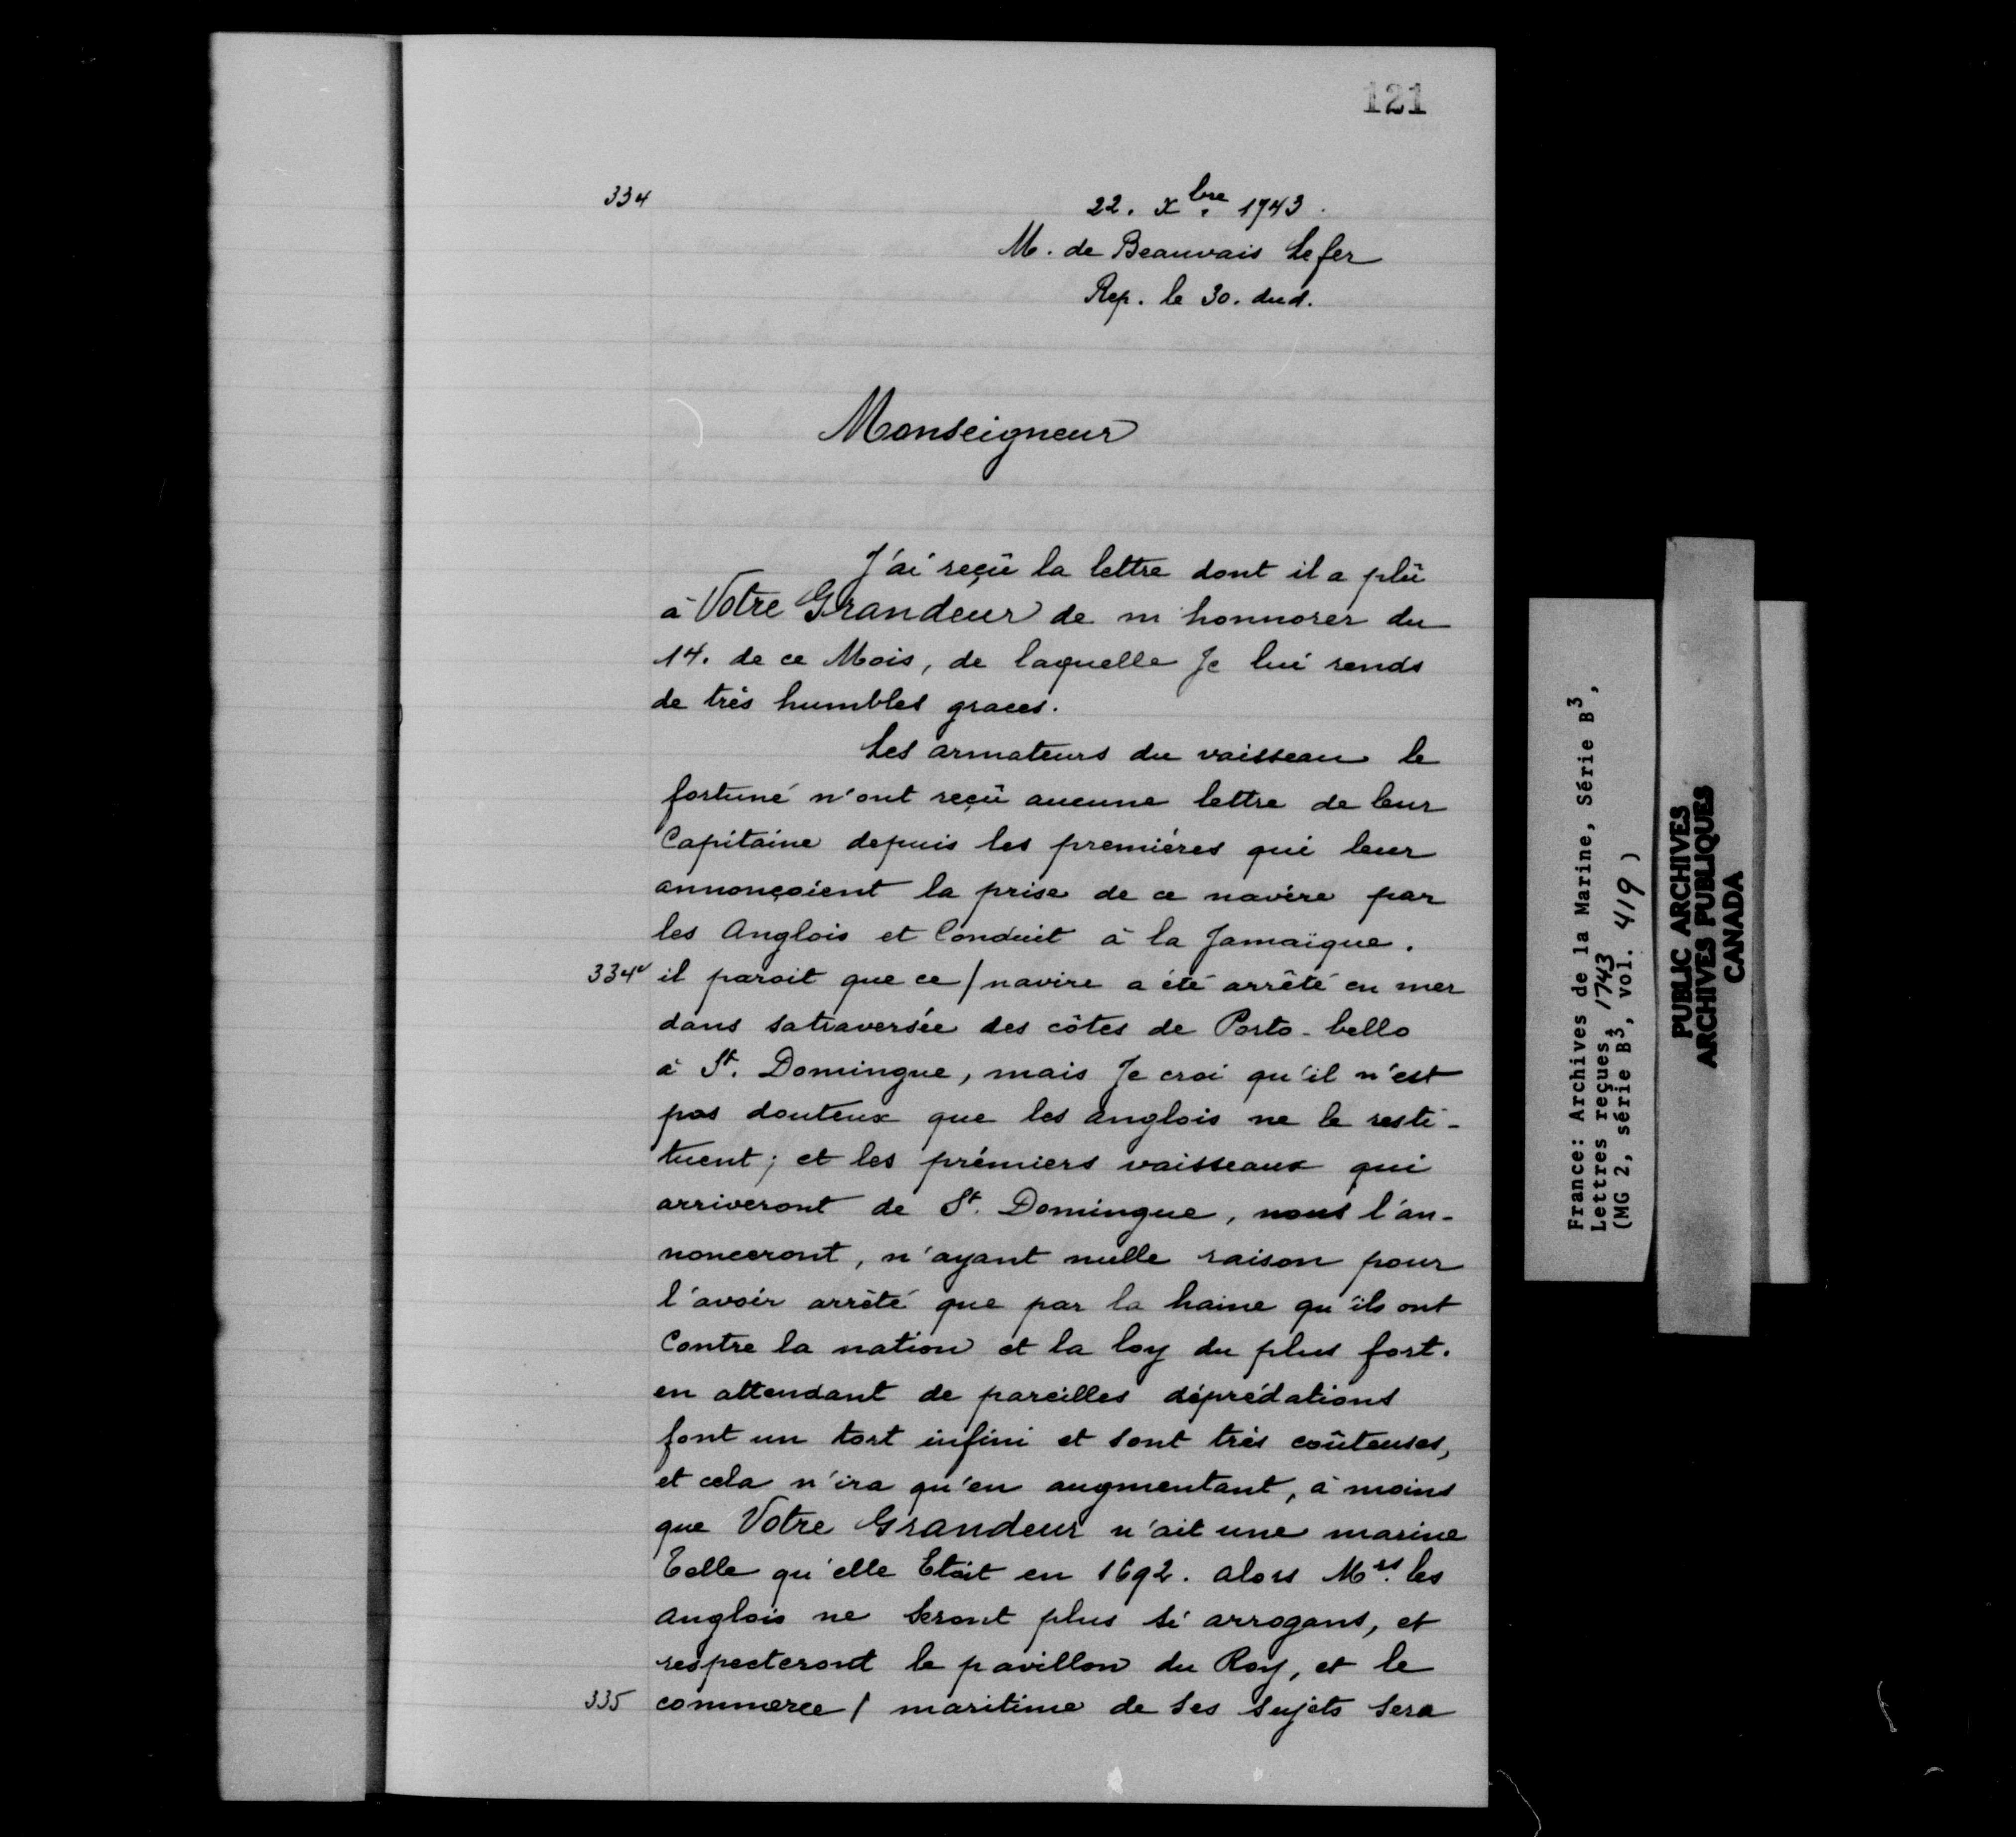 121
334
22. Xbre. 1743.
M. de Beauvais Lefer
Rep. le 30. dud.
Monseigneur
J'ai reçû la lettre dont il a plû
à Votre Grandeur de m'honnorer du
14. de ce Mois, de laquelle Je lui rends
de très humbles graces.
Les armateurs du vaisseau le
fortuné n'ont reçû aucune lettre de leur
Capitaine depuis les premiéres qui leur
annonçoient la prise de ce navire par
les Anglois et Conduit à la Jamaïque.
334v il paroit que ce / navire a été arrêté en mer
dans satraversée des côtes de Porto-bello
à St. Domingue, mais Je croi qu'il n'est
pas douteux que les anglois ne le resti-
tuent; et les prémiers vaisseaux qui
arriveront de St. Domingue, nous l'an-
nonceront, n'ayant nulle raison pour
l'avoir arrêté que par la haine qu'ils ont
Contre la nation et la loy du plus fort.
en attendant de pareilles déprédations
font un tort infini et sont très coûteuses,
et cela n'ira qu'en augmentant, à moins
que Votre Grandeur n'ait une marine
Telle qu'elle Etoit en 1692. alors Mrs. les
anglois ne seront plus si arrogans, et
respecteront le pavillon du Roy, et le
335 commerce / maritime de ses sujets sera
France: Archives de la Marine, Série B3,
Lettres reçues, 1743
(MG 2, série B3, vol. 419)
PUBLIC ARCHIVES
ARCHIVES PUBLIQUES
CANADA